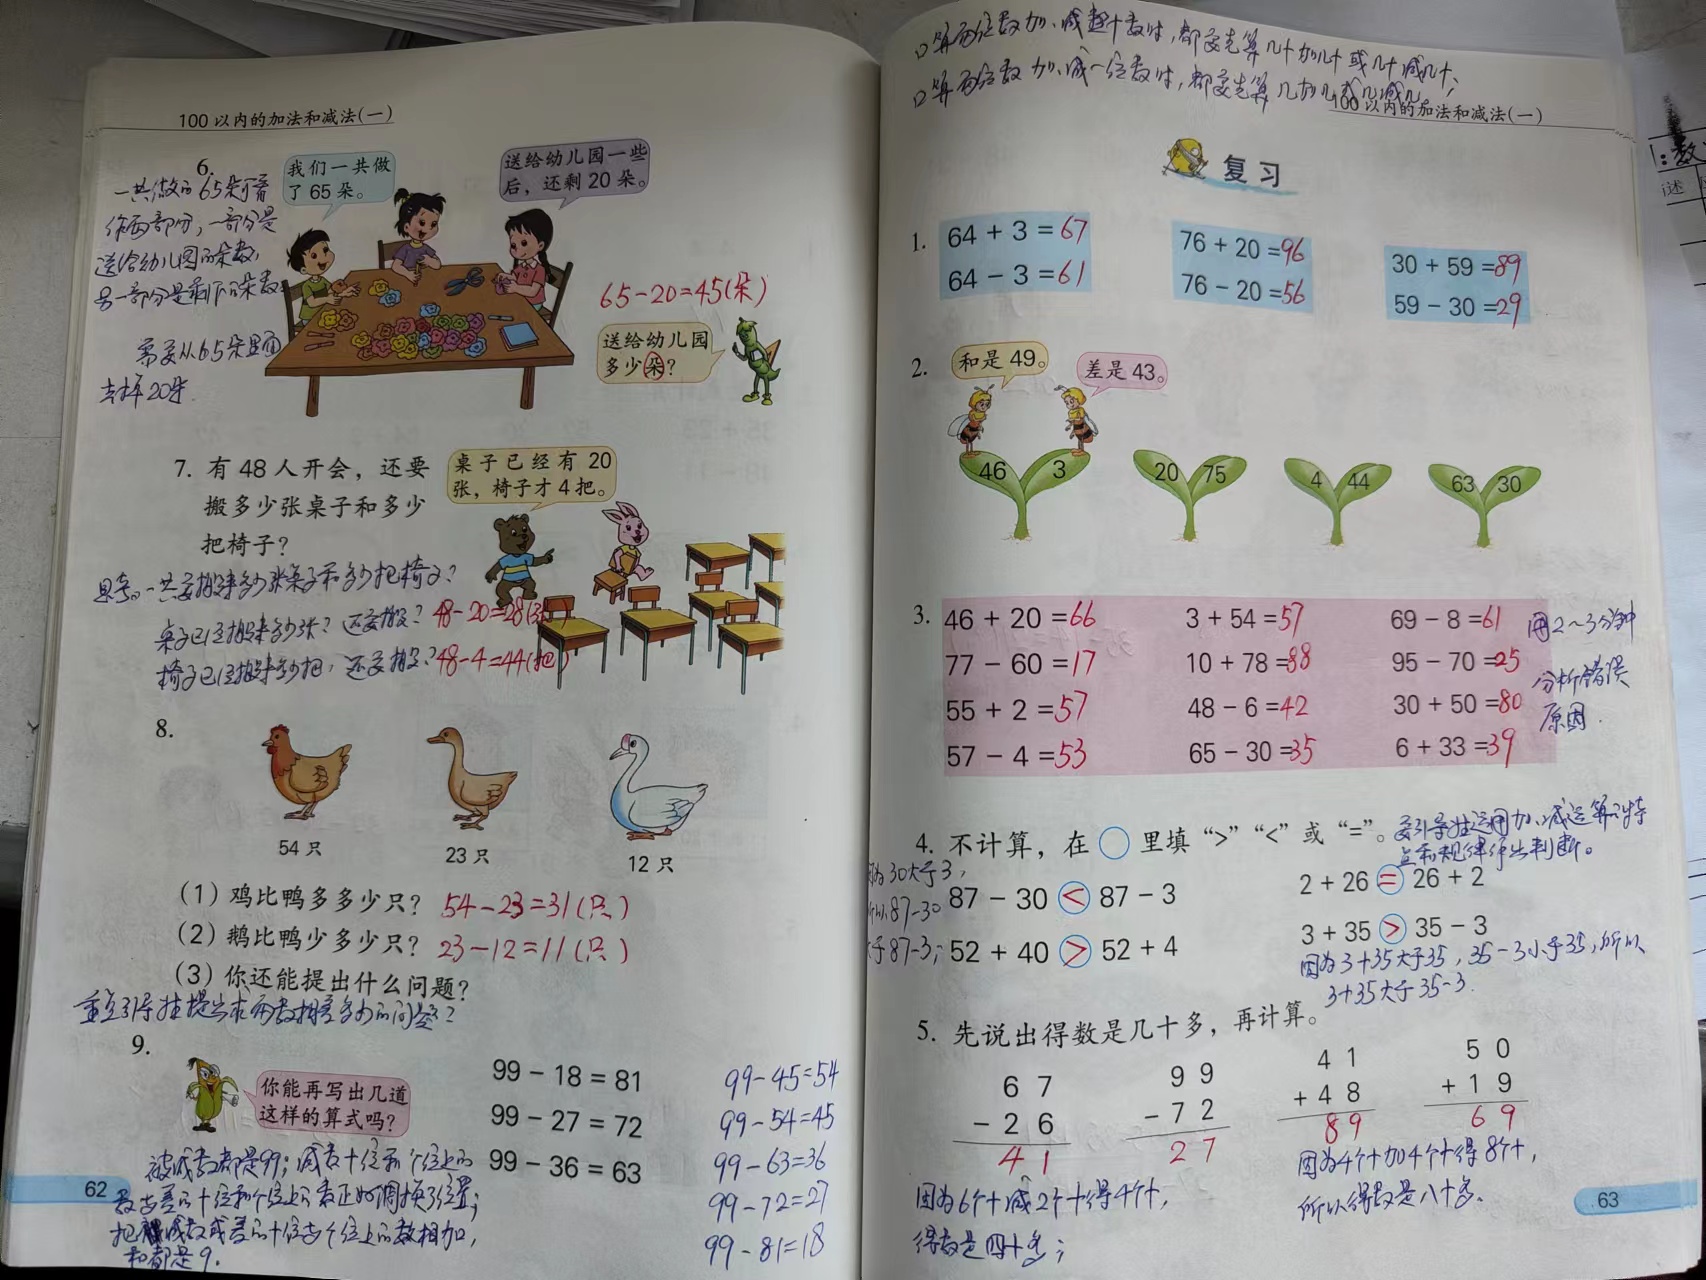 100以内的加法和减法(一)
6.
我们一共做
了65朵。
送给幼儿园一些
后，还剩20朵。
一共做的65朵可看
作两部分，一部分是
送给幼儿园的朵数，
另一部分是剩下的朵数
需要从65朵里面
去掉20朵
65-20=45(朵)
送给幼儿园
多少朵？
7. 有48人开会，还要
搬多少张桌子和多少
把椅子？
桌子已经有20
张，椅子才4把。
思考。一共要搬来多少张桌子和多少把椅子？
桌子已经搬来多少张？还要搬？ 48-20=28(张)
椅子已经搬来多少把，还要搬？ 48-4=44(把)
8.
54只
23只
12只
(1) 鸡比鸭多多少只？ 54-23=31(只)
(2) 鹅比鸭少多少只？ 23-12=11(只)
(3) 你还能提出什么问题？
重点引导学生提出求两数相差多少的问题？
9.
你能再写出几道
这样的算式吗？
99 - 18 = 81
99 - 27 = 72
99 - 36 = 63
99-45=54
99-54=45
99-63=36
99-72=27
99-81=18
被减数都是99；减数十位和个位上的
数与差的十位和个位上的数正好调换了位置；
把减数或差的十位与个位上的数相加，
和都是9.
62
口算两位数加、减整十数时，都要先算几十加几十或几十减几十，
口算两位数加、减一位数时，都要先算几加几或几减几，
100以内的加法和减法(一)
复习
1. 64 + 3 = 67
64 - 3 = 61
76 + 20 = 96
76 - 20 = 56
30 + 59 = 89
59 - 30 = 29
2. 和是49。 差是43。
46 3 20 75 4 44 63 30
3. 46 + 20 = 66 3 + 54 = 57 69 - 8 = 61
77 - 60 = 17 10 + 78 = 88 95 - 70 = 25
55 + 2 = 57 48 - 6 = 42 30 + 50 = 80
57 - 4 = 53 65 - 30 = 35 6 + 33 = 39
用2～3分钟
分析错误
原因.
4. 不计算，在○里填“>”“<”或“=”。
要引导学生运用加、减运算的特
点和规律作出判断。
87 - 30 < 87 - 3
2 + 26 = 26 + 2
52 + 40 > 52 + 4
3 + 35 > 35 - 3
因为30大于3，
所以87-30
大于87-3；
因为3+35大于35，35-3小于35，所以
3+35大于35-3.
5. 先说出得数是几十多，再计算。
6 7
- 2 6
4 1
9 9
- 7 2
2 7
4 1
+ 4 8
8 9
5 0
+ 1 9
6 9
因为6个十减2个十得4个十，
得数是四十多；
因为4个十加4个十得8个十，
所以得数是八十多.
63
数
述